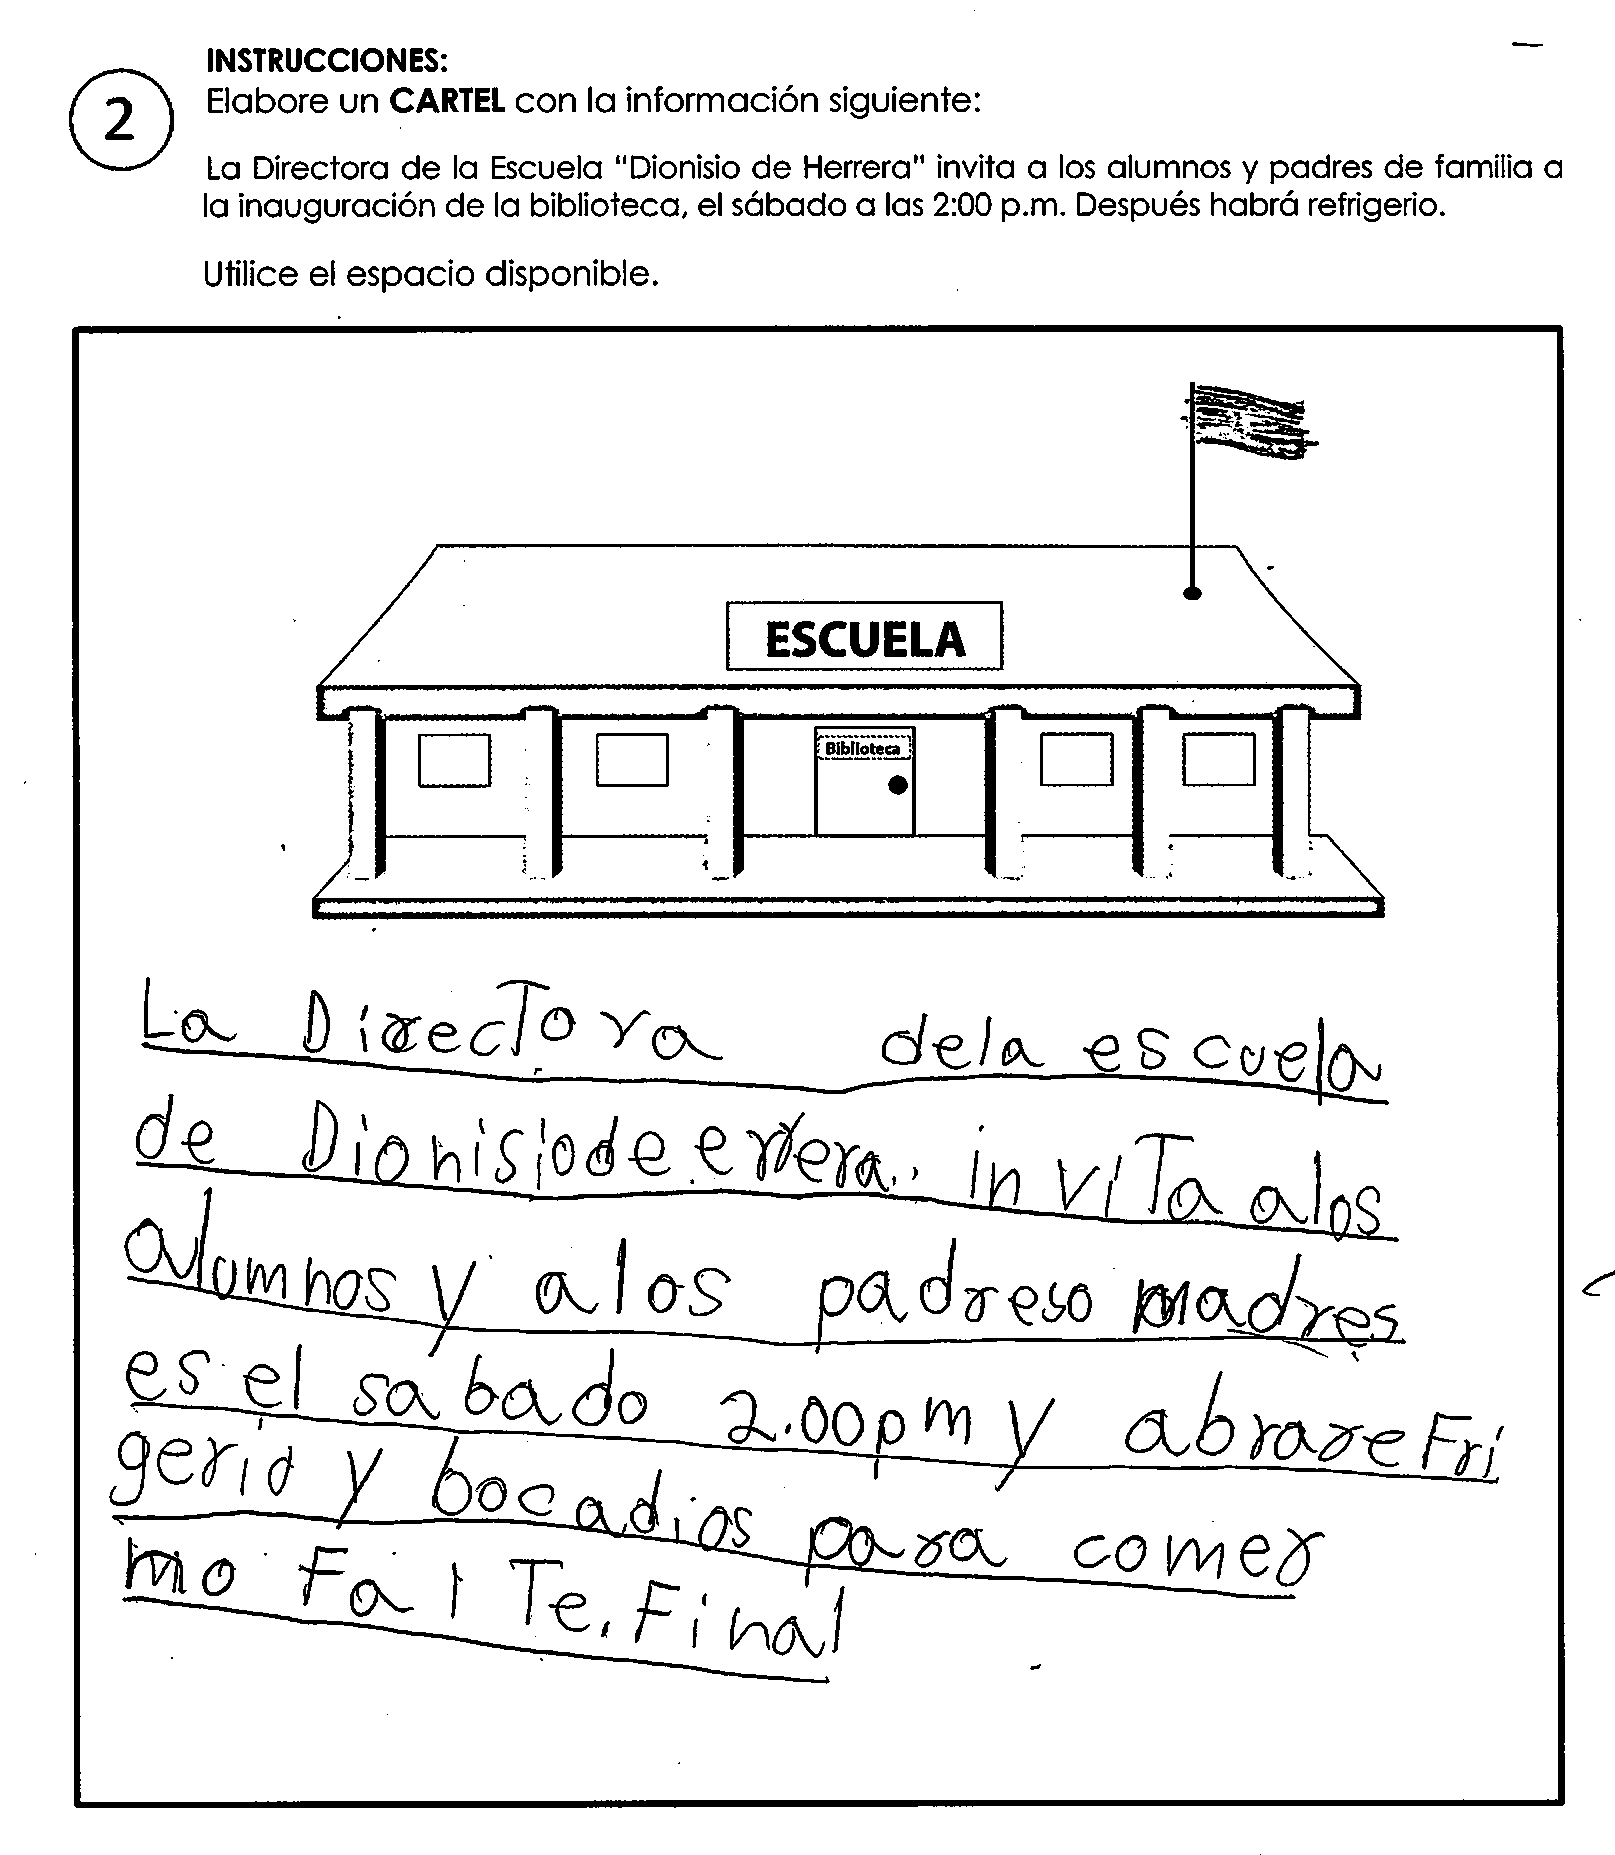 INSTRUCCIONES:
2
Elabore un CARTEL con la información siguiente:
La Directora de la Escuela "Dionisio de Herrera" invita a los alumnos y padres de familia a
la inauguración de la biblioteca, el sábado a las 2:00 p.m. Después habrá refrigerio.
Utilice el espacio disponible.
ESCUELA
Biblioteca
La Directora dela escuela
de Dionisiode errera. invita alos
alumnos y alos padreso madres
es el sabado 2.00pm y abrarefri
gerio y bocadios para comer
mo falte. Final